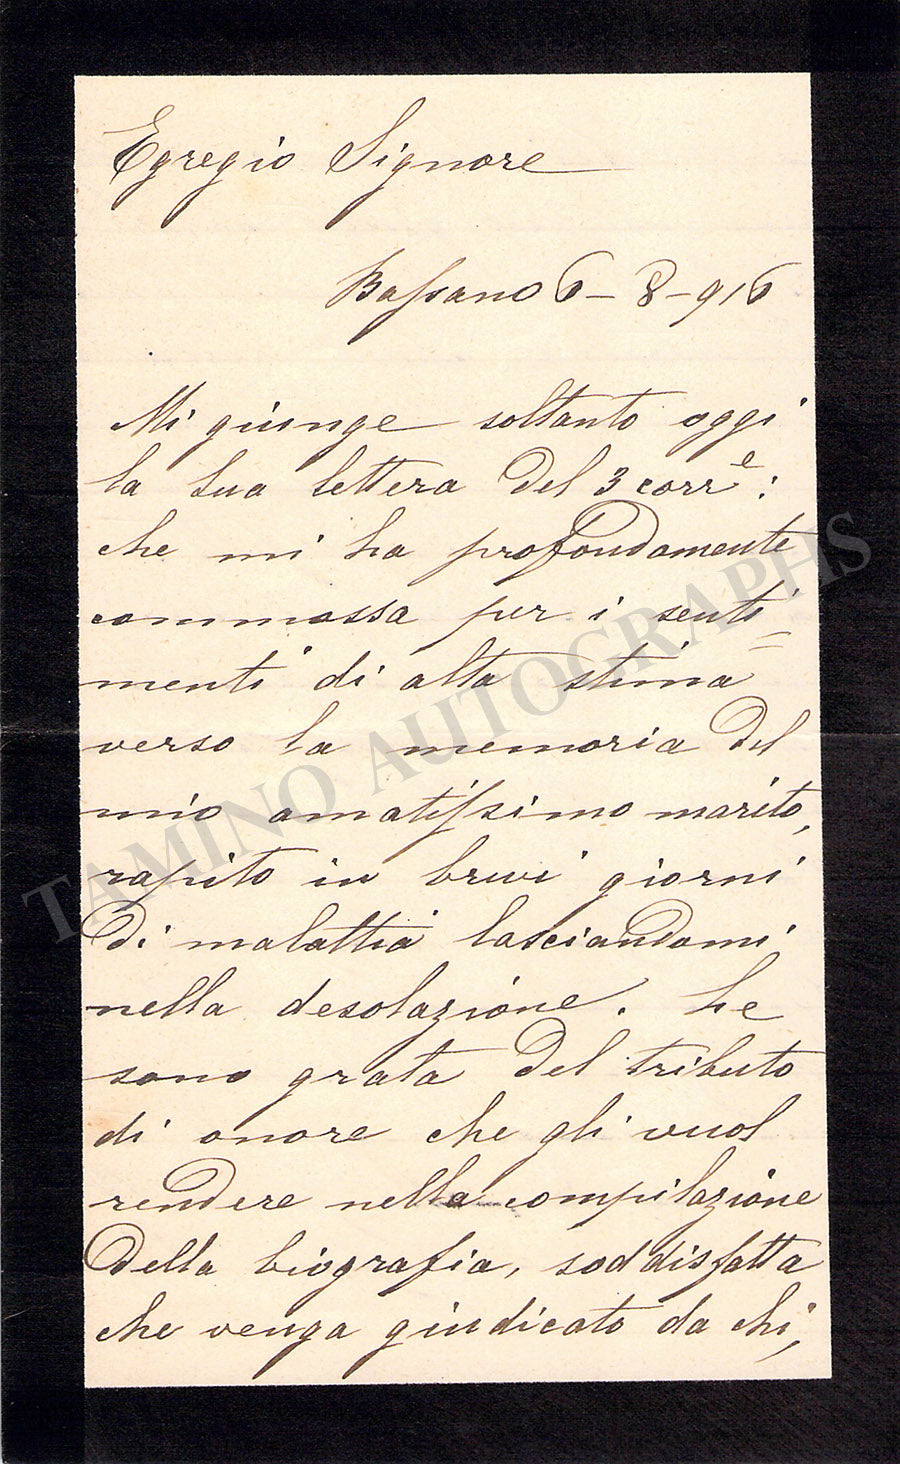 Egregio Signore
Bassano 6-8-916
Mi giunge soltanto oggi
la Sua lettera del 3 corr.e:
che mi ha profondamente
commossa per i senti=
menti di alta stima
verso la memoria del
mio amatissimo marito,
rapito in brevi giorni
di malattia lasciandomi
nella desolazione. Le
sono grata del tributo
di onore che gli vuol
rendere nella compilazione
della biografia, soddisfatta
che venga giudicato da chi,
TAMINO AUTOGRAPHS